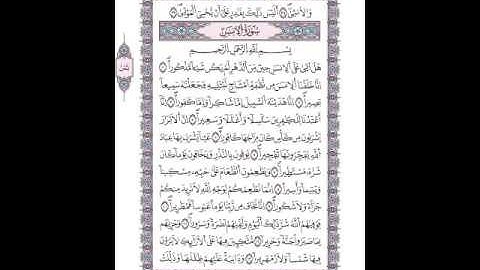 وَالْأُنثَىٰ أَلَيْسَ ذَٰلِكَ بِقَادِرٍ عَلَىٰ أَن يُحْيِيَ الْمَوْتَىٰ
سُورَةُ الْإِنسَانِ
بِسْمِ اللَّهِ الرَّحْمَٰنِ الرَّحِيمِ
هَلْ أَتَىٰ عَلَى الْإِنسَانِ حِينٌ مِّنَ الدَّهْرِ لَمْ يَكُن شَيْئًا مَّذْكُورًا
إِنَّا خَلَقْنَا الْإِنسَانَ مِن نُّطْفَةٍ أَمْشَاجٍ نَّبْتَلِيهِ فَجَعَلْنَاهُ سَمِيعًا
بَصِيرًا إِنَّا هَدَيْنَاهُ السَّبِيلَ إِمَّا شَاكِرًا وَإِمَّا كَفُورًا إِنَّا
أَعْتَدْنَا لِلْكَافِرِينَ سَلَاسِلًا وَأَغْلَالًا وَسَعِيرًا إِنَّ الْأَبْرَارَ
يَشْرَبُونَ مِن كَأْسٍ كَانَ مِزَاجُهَا كَافُورًا عَيْنًا يَشْرَبُ بِهَا عِبَادُ
اللَّهِ يُفَجِّرُونَهَا تَفْجِيرًا يُوفُونَ بِالنَّذْرِ وَيَخَافُونَ يَوْمًا كَانَ
شَرُّهُ مُسْتَطِيرًا وَيُطْعِمُونَ الطَّعَامَ عَلَىٰ حُبِّهِ مِسْكِينًا
وَيَتِيمًا وَأَسِيرًا إِنَّمَا نُطْعِمُكُمْ لِوَجْهِ اللَّهِ لَا نُرِيدُ مِنكُمْ
جَزَاءً وَلَا شُكُورًا إِنَّا نَخَافُ مِن رَّبِّنَا يَوْمًا عَبُوسًا قَمْطَرِيرًا
فَوَقَاهُمُ اللَّهُ شَرَّ ذَٰلِكَ الْيَوْمِ وَلَقَّاهُمْ نَضْرَةً وَسُرُورًا وَجَزَاهُم
بِمَا صَبَرُوا جَنَّةً وَحَرِيرًا مُّتَّكِئِينَ فِيهَا عَلَى الْأَرَائِكِ لَا يَرَوْنَ
فِيهَا شَمْسًا وَلَا زَمْهَرِيرًا وَدَانِيَةً عَلَيْهِمْ ظِلَالُهَا وَذُلِّلَتْ